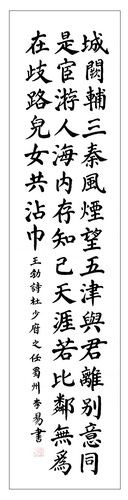 城闕輔三秦風煙望五津與君離別意同
是宦游人海内存知己天涯若比鄰無為
在歧路兒女共沾巾
王勃詩杜少府之任蜀州李易書